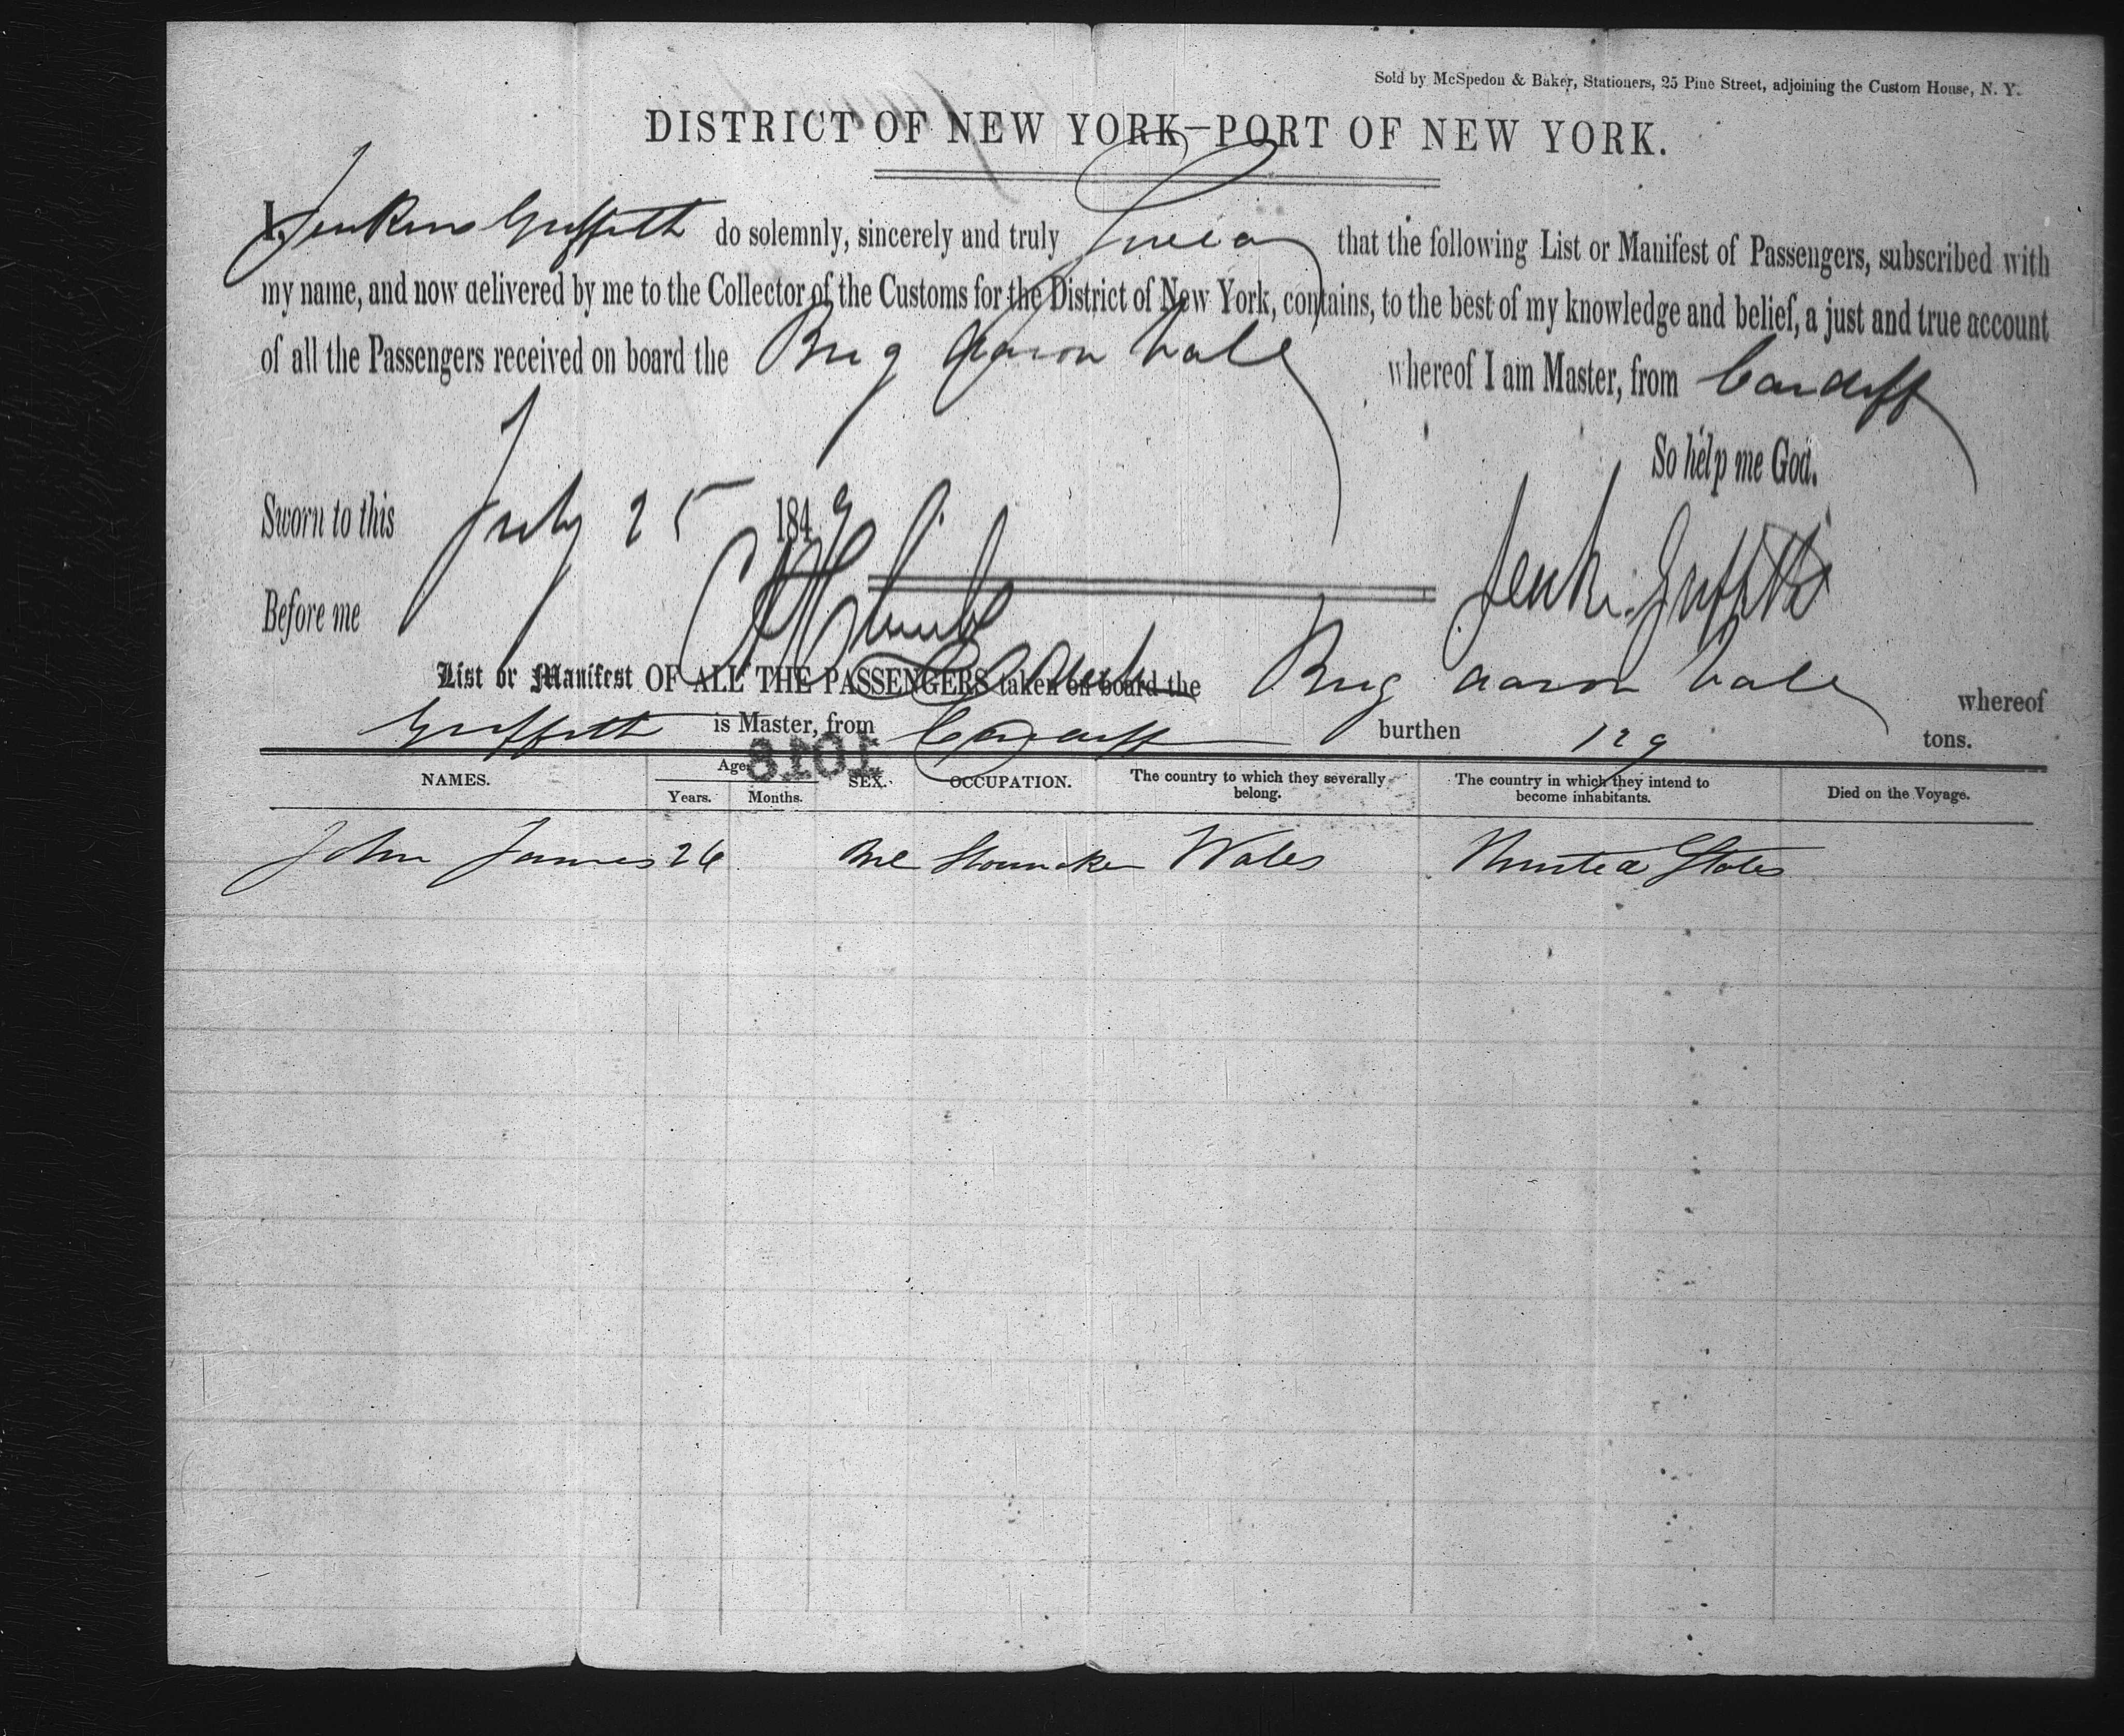 Sold by McSpedon & Baker, Stationers, 25 Pine Street, adjoining the Custom House, N. Y.
DISTRICT OF NEW YORK—PORT OF NEW YORK.
I, Jenkins Griffith do solemnly, sincerely and truly Swear that the following List or Manifest of Passengers, subscribed with
my name, and now delivered by me to the Collector of the Customs for the District of New York, contains, to the best of my knowledge and belief, a just and true account
of all the Passengers received on board the Brig Aaron Vale whereof I am Master, from Cardiff
So help me God.
Sworn to this July 25 1849
Jenk. Griffith
Before me
List or Manifest OF ALL THE PASSENGERS taken on board the Brig Aaron Vale whereof
Griffith is Master, from Cardiff burthen 129 tons.
1018
NAMES. Age. Years. Months. SEX. OCCUPATION. The country to which they severally belong. The country in which they intend to become inhabitants. Died on the Voyage.
John James 26 Mle Shoemaker Wales United States